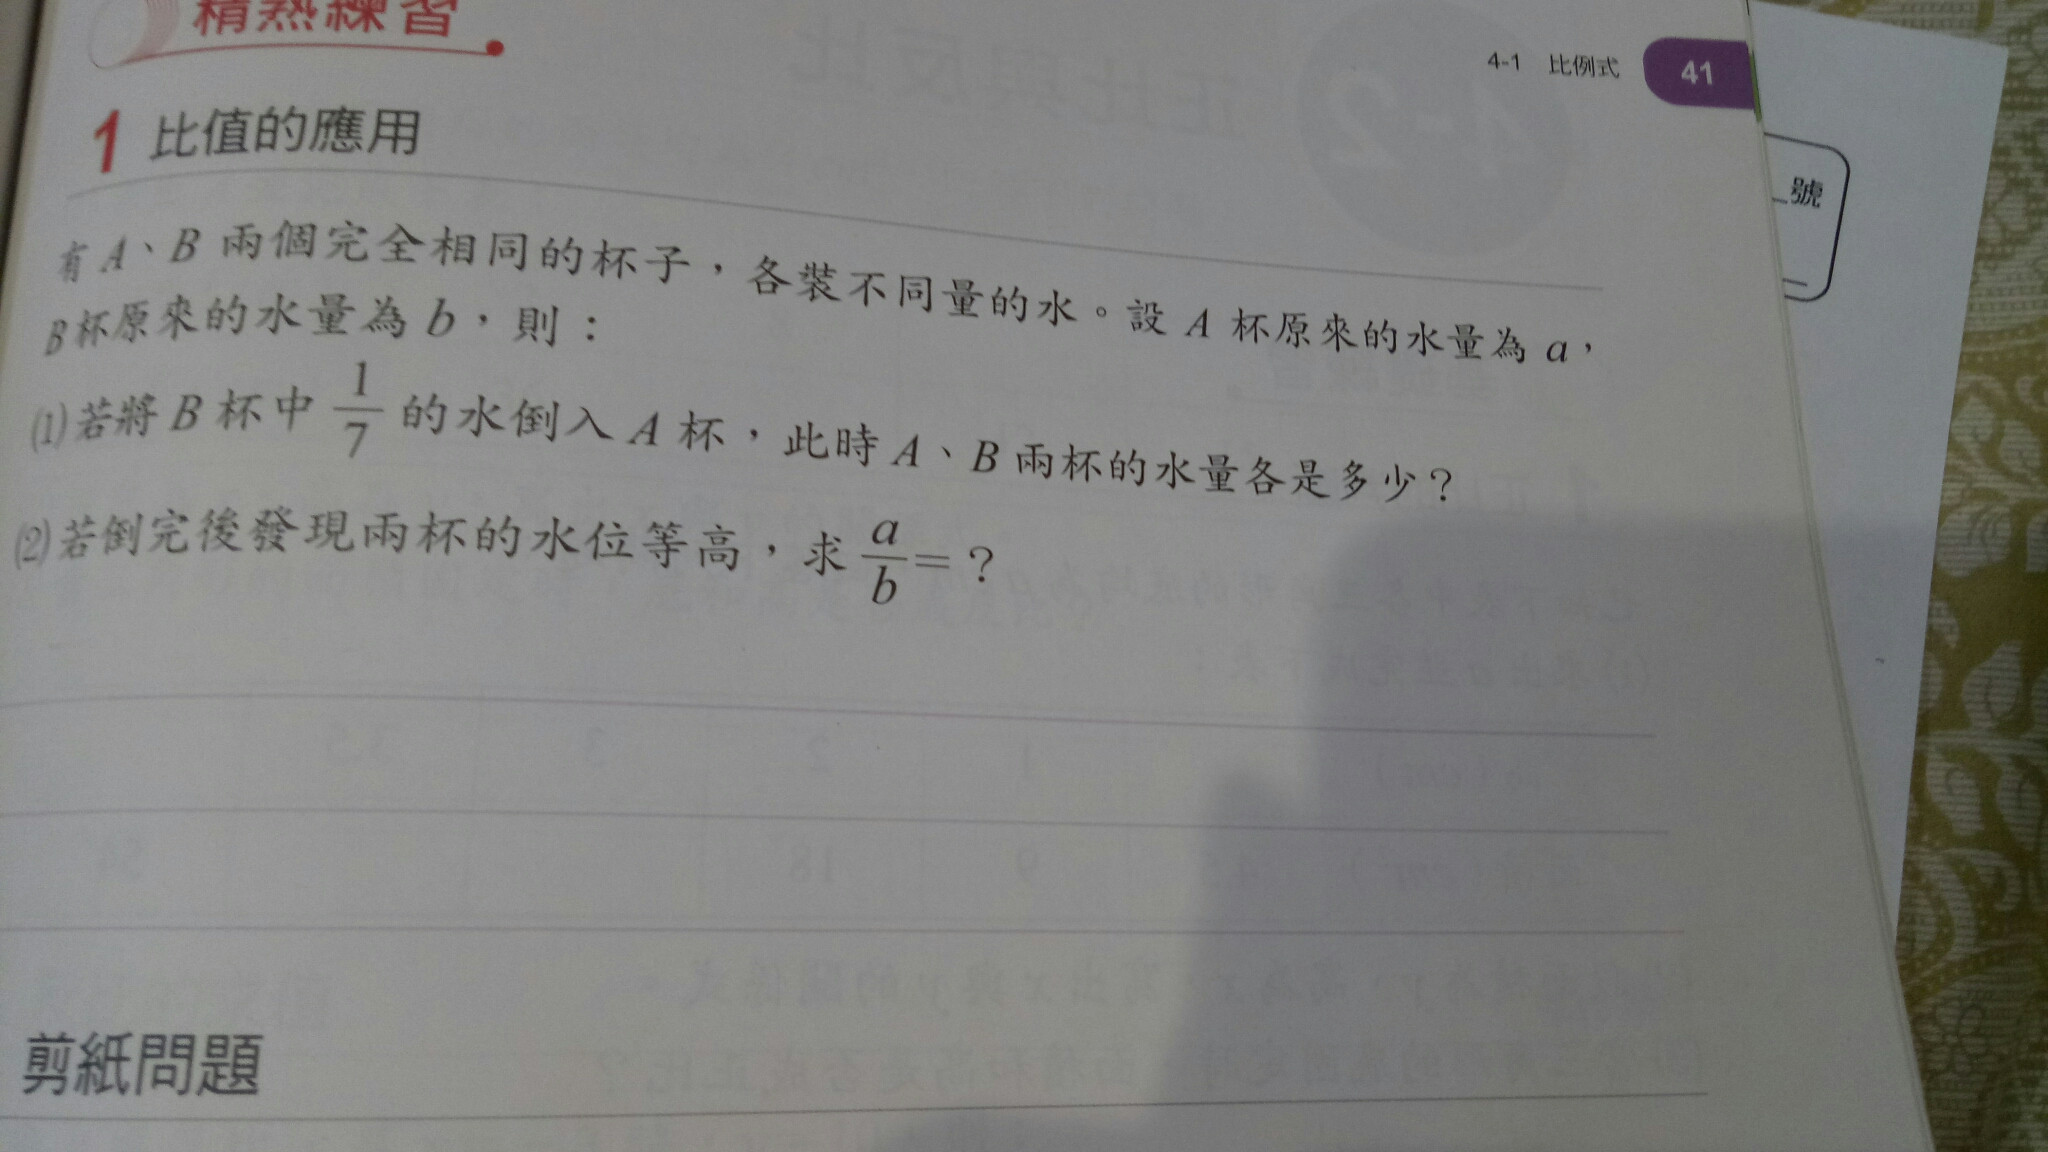 精熟練習
4-1 比例式 41
1 比值的應用
號
有 A、B 兩個完全相同的杯子，各裝不同量的水。設 A 杯原來的水量為 a，
B 杯原來的水量為 b，則：
(1)若將 B 杯中 1/7 的水倒入 A 杯，此時 A、B 兩杯的水量各是多少？
(2)若倒完後發現兩杯的水位等高，求 a/b = ？
剪紙問題